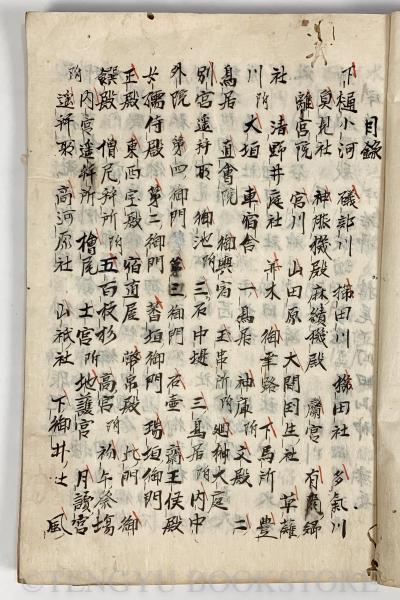 目録
下樋小河 磯部川 櫛田川 櫛田社 多氣川
魚見社 神服機殿麻績機殿 齋宮 有爾郷
離宮院 宮川 山田原 大間国生社 草薙
社 清野井庭社 并木 御幸路 下馬所 豊
川 所 大垣 車宿舎 一鳥居 神庫所 文殿 二
鳥居 直會院 御輿宿 玉串所 所廻神大庭
別宮遥拝所 御池 所 三石中堤 三鳥居 所 内中
外院 第四御門 第三御門 石壷 齋王侯殿
女孺侍殿 第二御門 蕃垣御門 瑞垣御門
正殿 東西宝殿 宿直屋 幣帛殿 北門 御
饌殿 僧尼拝所 所 五百枝杉 高宮 所 初午祭場
所 内宮遥拝所 檜尾 土宮 所 地護宮 月讀宮
所 遥拝所 高河原社 山祇社 下御井 風
©TENGYU BOOKSTORE